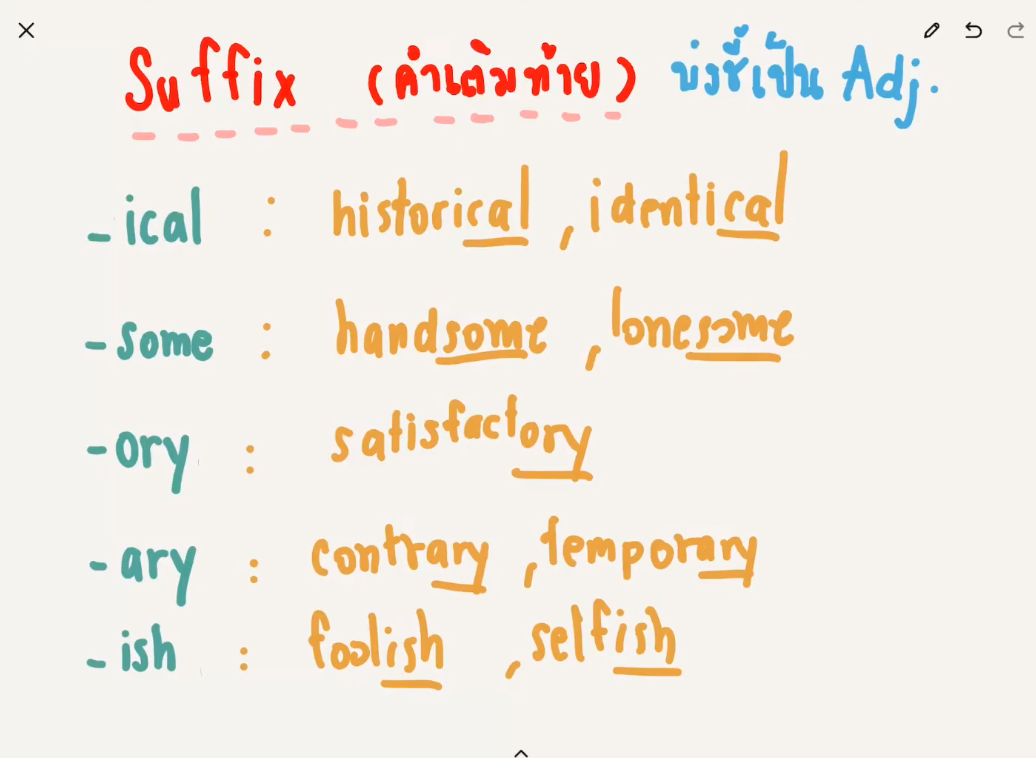 Suffix (คำเติมท้าย) บ่งชี้เป็น Adj.
-ical : historical , identical
-some : handsome , lonesome
-ory : satisfactory
-ary : contrary , temporary
-ish : foolish , selfish